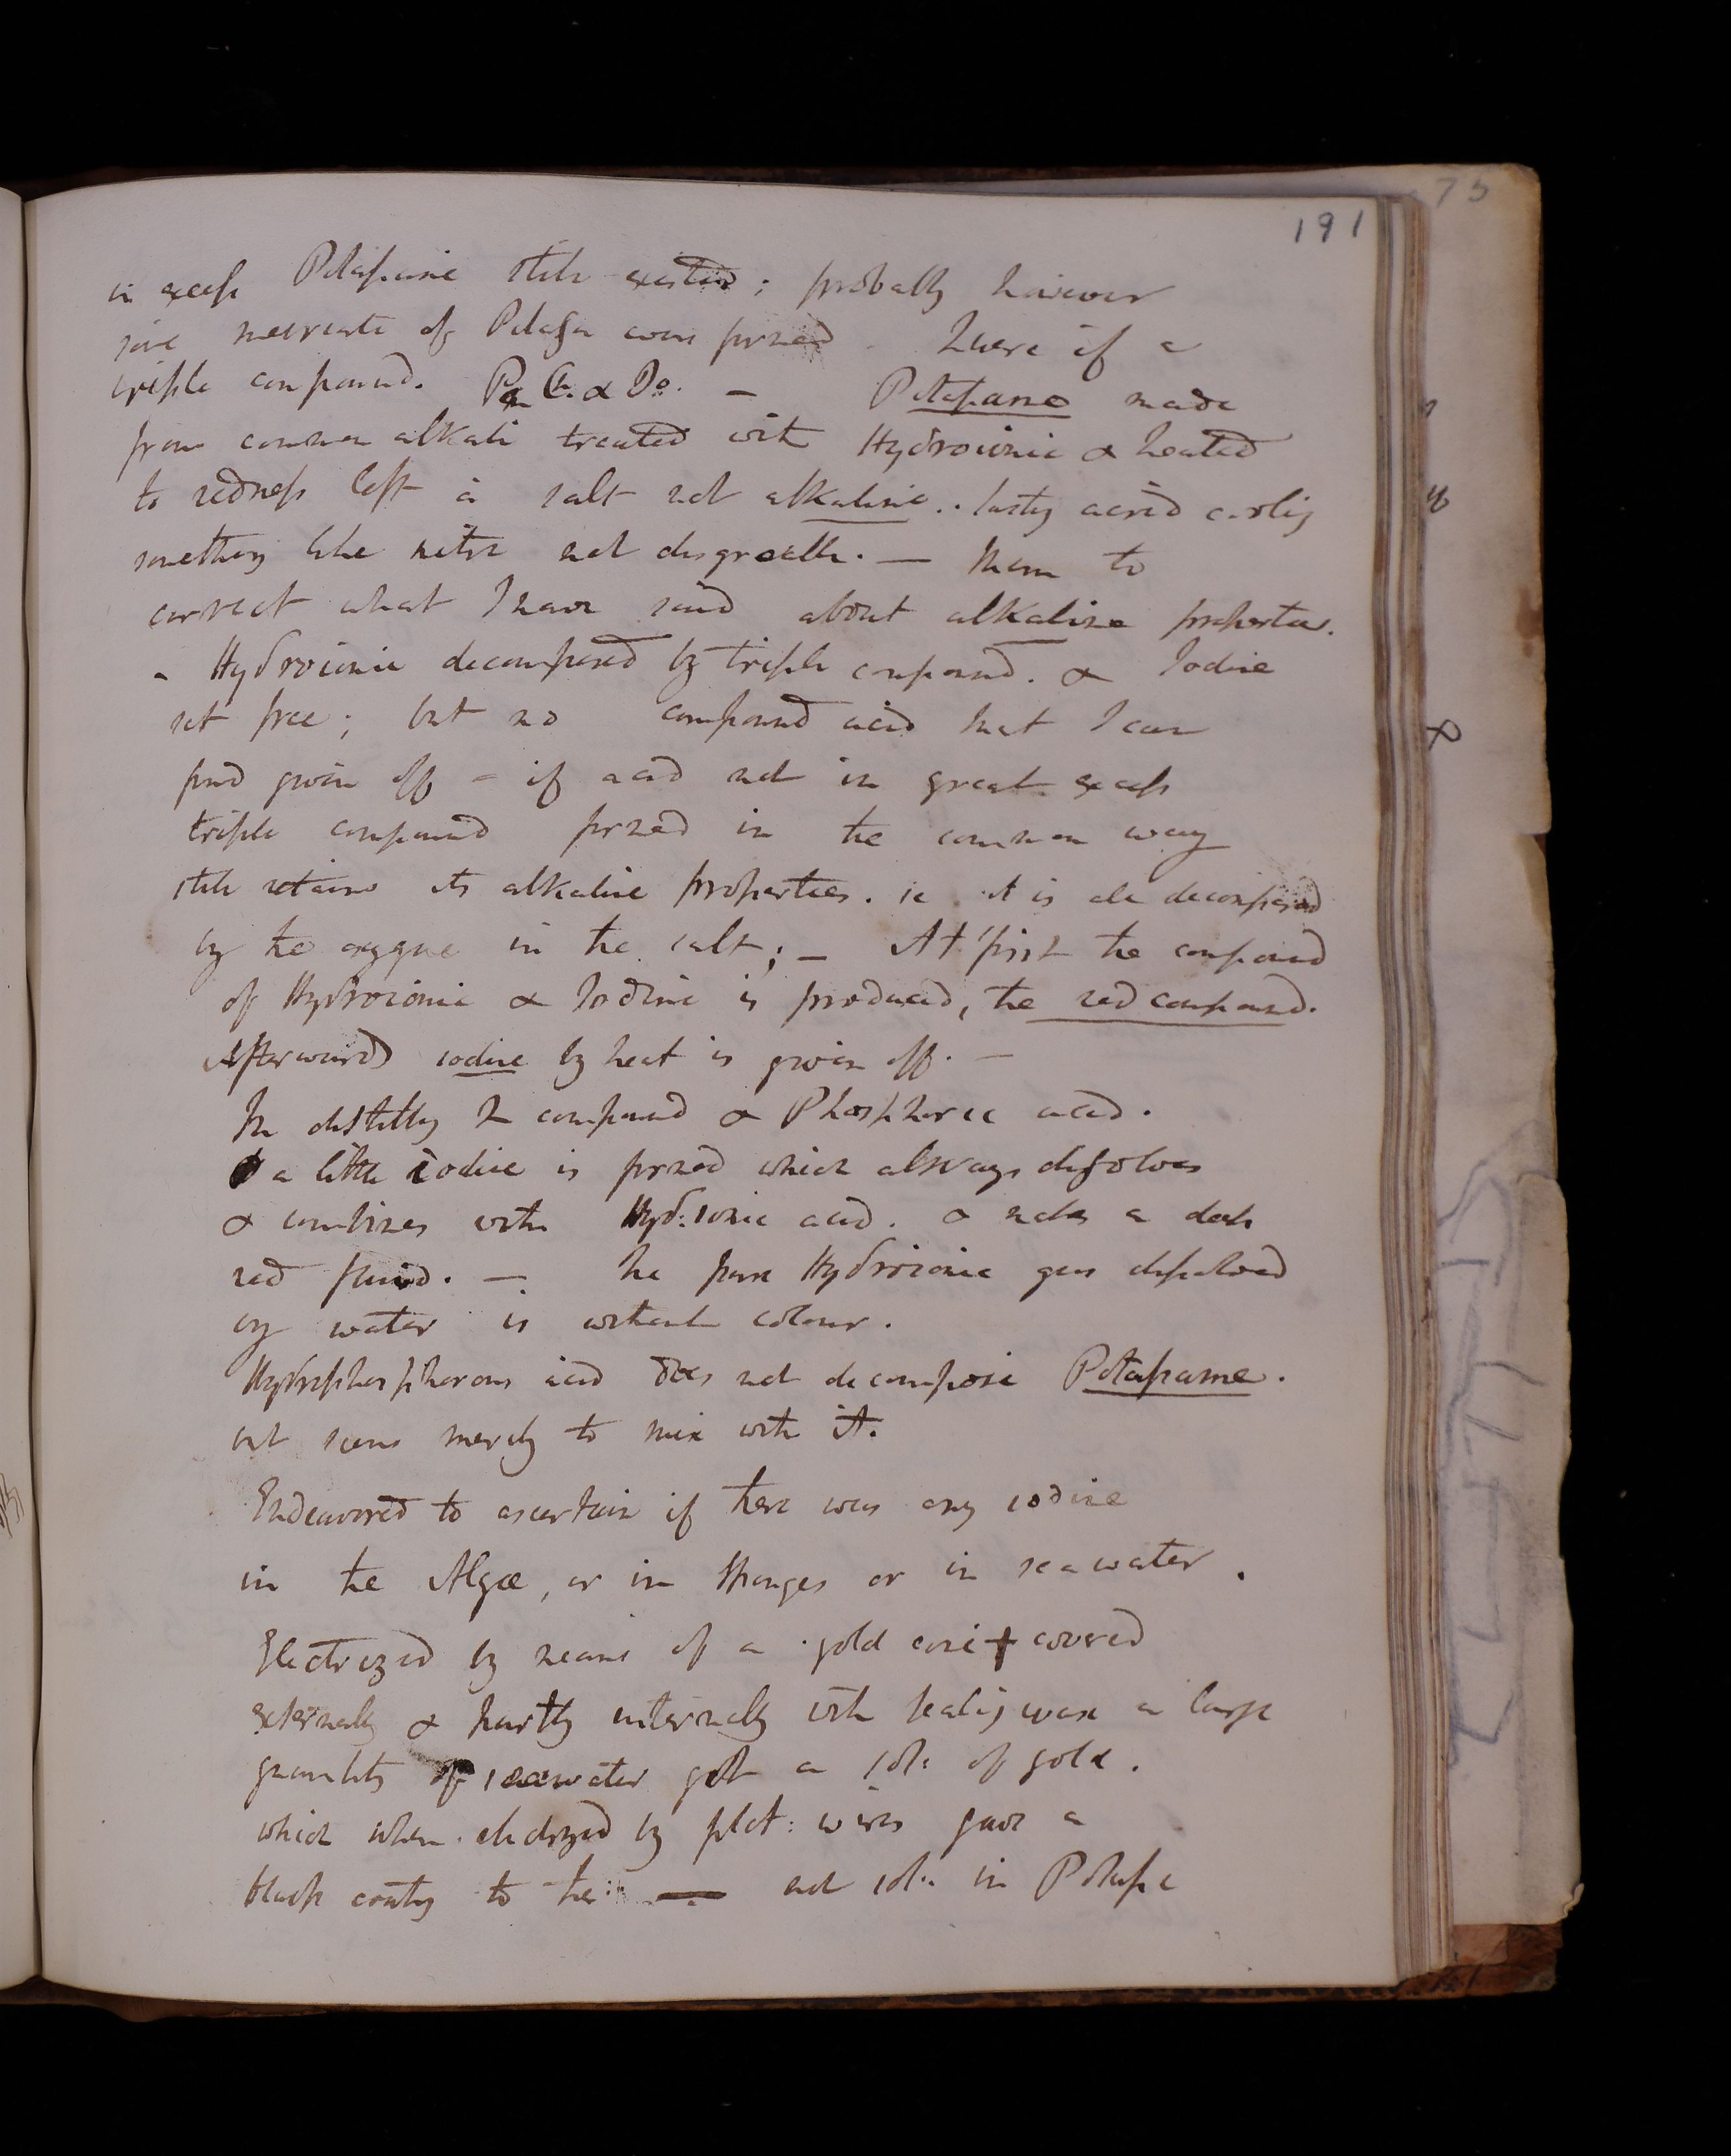 191
in excess Potassane still existed; probably however
some muriate of Potassa was formed. Quere if a
triple compound. P C. & Io. — Potassane made
from common alkali treated with Hydroionic & heated
to redness left a salt not alkaline.. tasting acrid cooling
something like nitre not disgreeable. — Mem to
correct what I have said about alkaline properties.
- Hydroionic decomposed by triple compound. & Iodine
set free; but no compound acid that I can
find given off - if acid not in great excess
triple compound formed in the common way
still retains its alkaline properties. ie it is decomposed
by the oxygne in the salt; — At first the compound
of Hydroionic & Iodine is produced, the red compound.
Afterwards iodine by heat is given off. —
In distilling compound & Phosphoric acid.
a little iodine is formed which always dissolves
& combines with Hyd:ionic acid. & makes a deep
red fluid. — The pure Hydroionic gas dissolved
by water is without colour.
Hydrophosphorous acid does not decompose Potassame.
but seems merely to mix with it.
Endeavored to ascertain if there was any iodine
in the Algæ, or in Sponges or in seawater.
Electrized by means of a gold wire + covered
externally & partly internally with sealing wax a large
quantity of seawater got a sol: of gold.
which when electrized by plat: wires gave a
black coating to the — not sol: in Potash
75